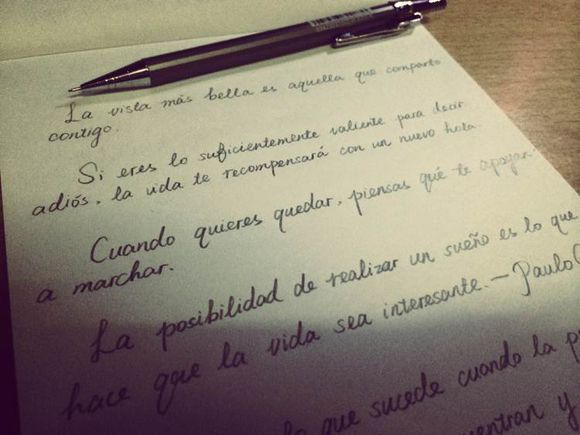 La vista más bella es aquella que comparto
contigo.
Si eres lo suficientemente valiente para decir
adiós, la vida te recompensará con un nuevo hola.
Cuando quieres quedar, piensas qué te apoyan
a marchar.
La posibilidad de realizar un sueño es lo que
hace que la vida sea interesante. — Paulo
lo que sucede cuando la
y